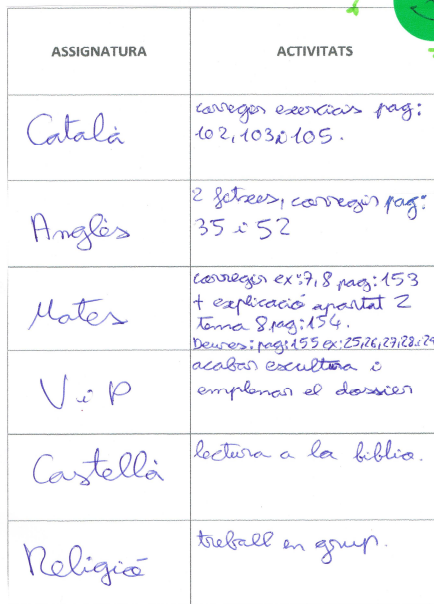 ASSIGNATURA
ACTIVITATS
Català
corregir exercicis pag:
102, 103 i 105.
Anglès
2 fitxes, corregir pag:
35 i 52
Mates
corregir ex: 7, 8 pag: 153
+ explicació apartat 2
tema 8 pag: 154.
Deures: pag: 155 ex: 25, 26, 27, 28 i 29
V i P
acabar escultura i
emplenar el dossier
Castellà
lectura a la biblio.
Religió
treball en grup.